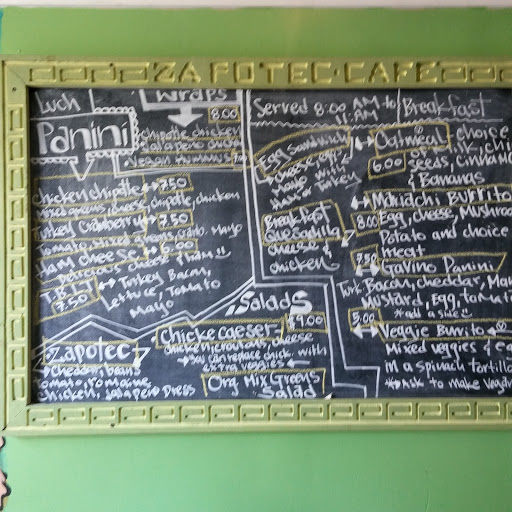 ZAPOTEC CAFE
Luch
Panini
Wraps
8.00
chipotle chicken
Jalapeno chicken
Vegan Hummus
chicken chipotle 7.50
Mixed greens, cheese, chipotle, chicken
Turkey Cranberry 7.50
Mayo
Ham cheese 6.00
Delicious cheese
7.50
Turkey Bacon,
Lettuce, Tomato
Mayo
Zapotec
cheddar, beans
tomato, romaine,
chicken, Jalapeno Dress
Salads
chicke caeser $9.00
chicken, croutons, cheese
You can replace chick. with
extra veggies
Org Mix Greens
Salad
Served 8:00 AM to
11 AM
Breakfast
Egg Sandwich
cheese, egg,
Mayo, with
Ham or Turkey
Breakfast
Quesadilla
cheese &
chicken
Oatmeal choice
6.00
seeds, cinna
& Bananas
Mariachi Burrito
8.00 Egg, cheese, Mushroo
Potato and choice
meat
7.50 Gavino Panini
Turk. Bacon, cheddar, May
Mustard, Egg, tomato
*add a side
5.00 Veggie Burrito
Mixed veggies, eg
in a spinach tortilla
*Ask to make vegan